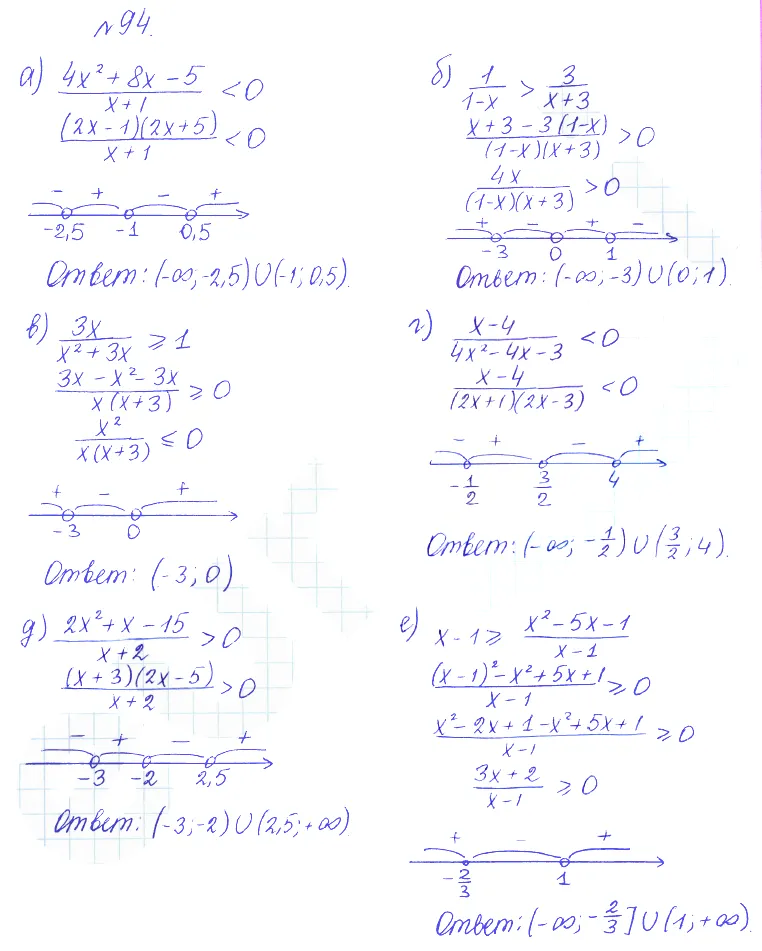 №94.
а) (4x² + 8x - 5)/(x+1) < 0
((2x-1)(2x+5))/(x+1) < 0
- + - +
-2,5 -1 0,5
Ответ: (-∞; -2,5)∪(-1; 0,5).
б) 1/(1-x) > 3/(x+3)
(x+3-3(1-x))/((1-x)(x+3)) > 0
4x/((1-x)(x+3)) > 0
+ - + -
-3 0 1
Ответ: (-∞; -3)∪(0; 1).
в) 3x/(x²+3x) ⩾ 1
(3x-x²-3x)/(x(x+3)) ⩾ 0
x²/(x(x+3)) ⩽ 0
+ - +
-3 0
Ответ: (-3; 0)
г) (x-4)/(4x²-4x-3) < 0
(x-4)/((2x+1)(2x-3)) < 0
- + - +
-1/2 3/2 4
Ответ: (-∞; -1/2)∪(3/2; 4).
д) (2x²+x-15)/(x+2) > 0
((x+3)(2x-5))/(x+2) > 0
- + - +
-3 -2 2,5
Ответ: (-3; -2)∪(2,5; +∞)
е) x-1 ⩾ (x²-5x-1)/(x-1)
((x-1)²-x²+5x+1)/(x-1) ⩾ 0
(x²-2x+1-x²+5x+1)/(x-1) ⩾ 0
(3x+2)/(x-1) ⩾ 0
+ - +
-2/3 1
Ответ: (-∞; -2/3]∪(1; +∞)